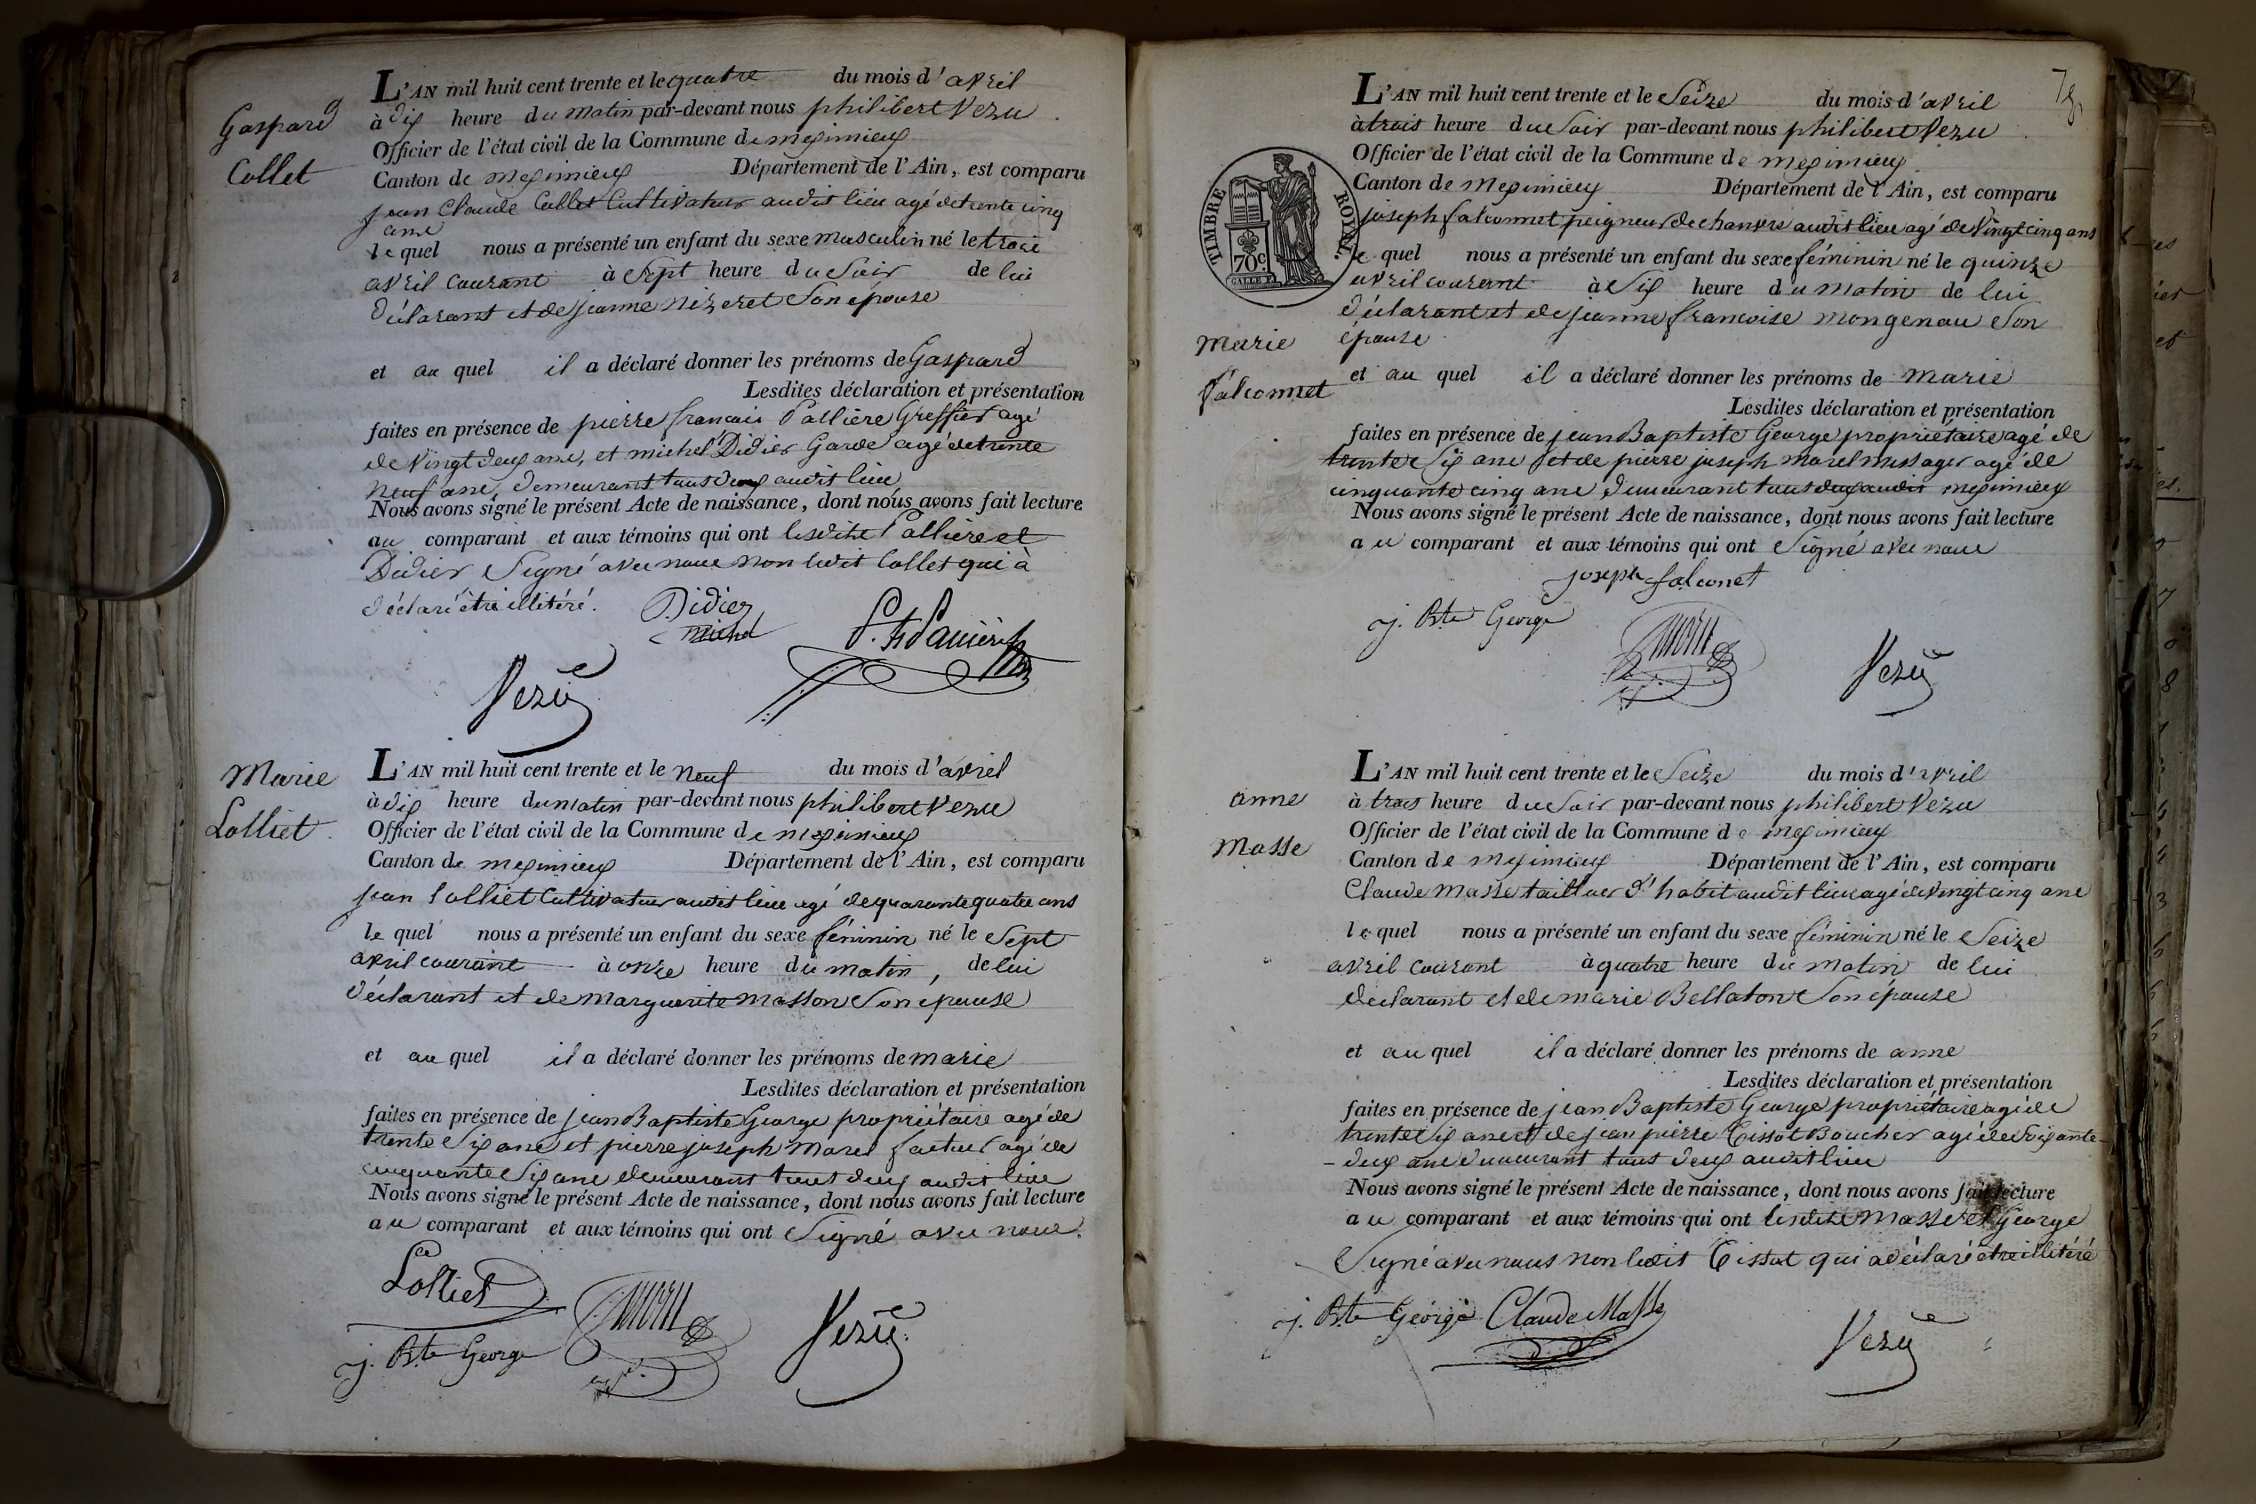 Gaspard
Collet
L'AN mil huit cent trente et le quatre du mois d'avril
à dix heure du matin par-devant nous philibert Vezu
Officier de l'état civil de la Commune de meximieux
Canton de meximieux Département de l'Ain, est comparu
jean Claude Collet Cultivateur audit lieu agé de trente cinq
ans
lequel nous a présenté un enfant du sexe masculin né le trois
avril courant à Sept heure du Soir de lui
déclarant et de jeanne nizeret Son épouse
et au quel il a déclaré donner les prénoms de Gaspard
Lesdites déclaration et présentation
faites en présence de pierre francois Pallière Greffier agé
de Vingt deux ans, et michel Didier Garde agé de trente
neuf ans, demeurant tous deux audit lieu
Nous avons signé le présent Acte de naissance, dont nous avons fait lecture
au comparant et aux témoins qui ont lesdits Pallière et
Didier Signé avec nous non ledit Collet qui à
déclaré être illitéré.
Didier
michel
Vezu
Marie
Lolliet
L'AN mil huit cent trente et le neuf du mois d'avril
à dix heure du matin par-devant nous philibert Vezu
Officier de l'état civil de la Commune de meximieux
Canton de meximieux Département de l'Ain, est comparu
jean Lolliet Cultivateur audit lieu agé de quarante quatre ans
le quel nous a présenté un enfant du sexe féminin né le Sept
avril courant à onze heure du matin, de lui
déclarant et de marguerite masson Son épouse
et au quel il a déclaré donner les prénoms de marie
Lesdites déclaration et présentation
faites en présence de jean Baptiste George propriétaire agé de
trente Six ans et pierre joseph morel facteur agé de
cinquante Six ans demeurant tous deux audit lieu
Nous avons signé le présent Acte de naissance, dont nous avons fait lecture
au comparant et aux témoins qui ont Signé avec nous.
Lolliet
j. Bte George
Vezu
L'AN mil huit cent trente et le Seize du mois d'avril
à trois heure du Soir par-devant nous philibert Vezu
Officier de l'état civil de la Commune de meximieux
Canton de meximieux Département de l'Ain, est comparu
TIMBRE ROYAL.
70c.
joseph falconnet peigneur de chanvre audit lieu agé de Vingt cinq ans
le quel nous a présenté un enfant du sexe féminin né le quinze
avril courant à Six heure du matin de lui
déclarant et de jeanne francoise mongenau Son
marie
falconnet
épouse
et au quel il a déclaré donner les prénoms de marie
Lesdites déclaration et présentation
faites en présence de jean Baptiste George propriétaire agé de
trente Six ans et de pierre joseph morel messager agé de
cinquante cinq ans demeurant tous deux audit meximieux
Nous avons signé le présent Acte de naissance, dont nous avons fait lecture
au comparant et aux témoins qui ont Signé avec nous
joseph falconet
j. Bte George
Vezu
anne
Masse
L'AN mil huit cent trente et le Seize du mois d'avril
à trois heure du Soir par-devant nous philibert Vezu
Officier de l'état civil de la Commune de meximieux
Canton de meximieux Département de l'Ain, est comparu
Claude Masse tailleur d'habit audit lieu agé de vingt cinq ans
lequel nous a présenté un enfant du sexe féminin né le Seize
avril courant à quatre heure du matin de lui
déclarant et de marie Bellaton Son épouse
et au quel il a déclaré donner les prénoms de anne
Lesdites déclaration et présentation
faites en présence de jean Baptiste George propriétaire agé de
trente Six ans et de jean pierre Tissot Boucher agé de Soixante
-deux ans demeurant tous deux audit lieu
Nous avons signé le présent Acte de naissance, dont nous avons fait lecture
au comparant et aux témoins qui ont lesdits Masse et George
Signé avec nous non ledit Tissot qui a déclaré être illitéré
j. Bte George Claude Masse
Vezu